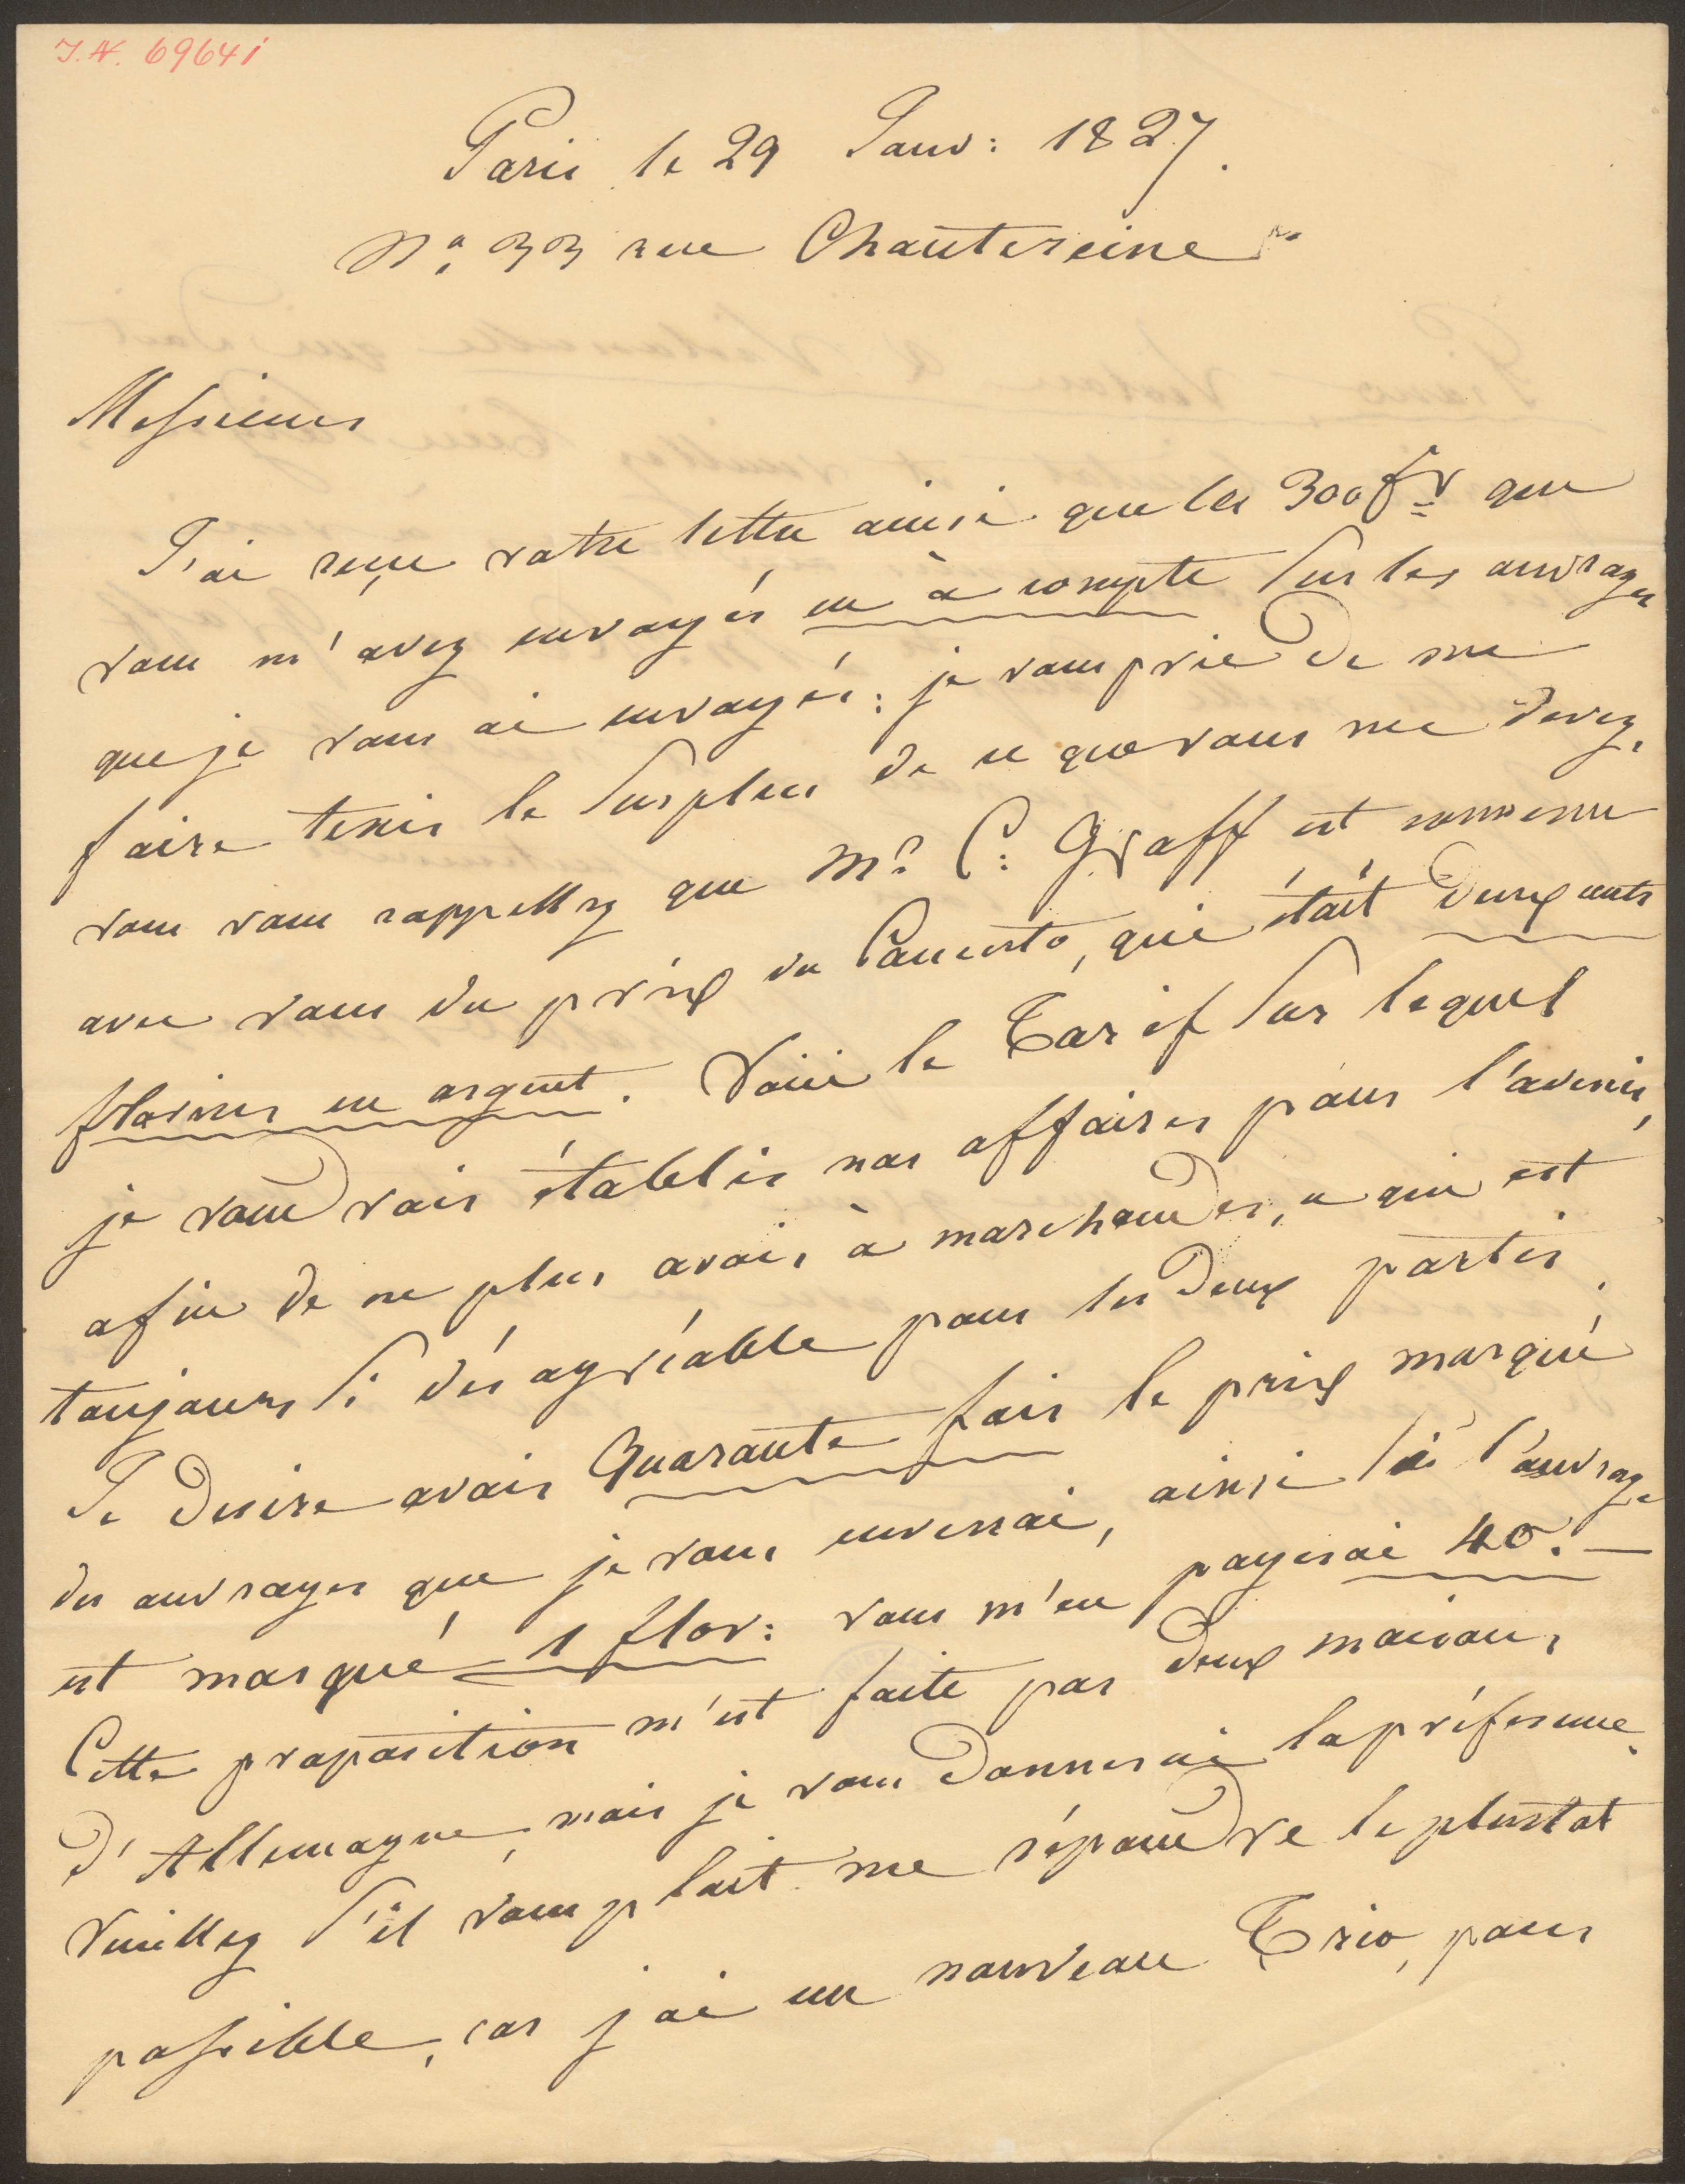 I.N. 69641
Paris le 29 Janv: 1827.
No. 33 rue Chautereine
Messieurs
J'ai reçue votre lettre ainsi que les 300 fr que
vous m'avez envoyés en à compte sur les ouvrages
que je vous ai envoyés: je vous prie de me
faire tenir le surplus de ce que vous me devez,
vous vous rappellez que Mr. C: Graff est convenu
avec vous du prix du Concerto, qui était deux cents
florins en argent. Voici le Tarif sur lequel
je voudrais établir nos affaires pour l'avenir,
afin de ne plus avoir à marchander, ce qui est
toujours si désagréable pour les deux partis.
Je desire avoir Quarante fois le prix marqué
des ouvrages que je vous enverrai, ainsi si l'ouvrage
est marqué 1 flor: vous m'en payerai 40.—
Cette proposition m'est faite par deux maisons
d'Allemagne, mais je vous donnerai la préference.
Veuillez s'il vous plait me répondre le plustot
possible, car j'ai un nouveau Trio, pour